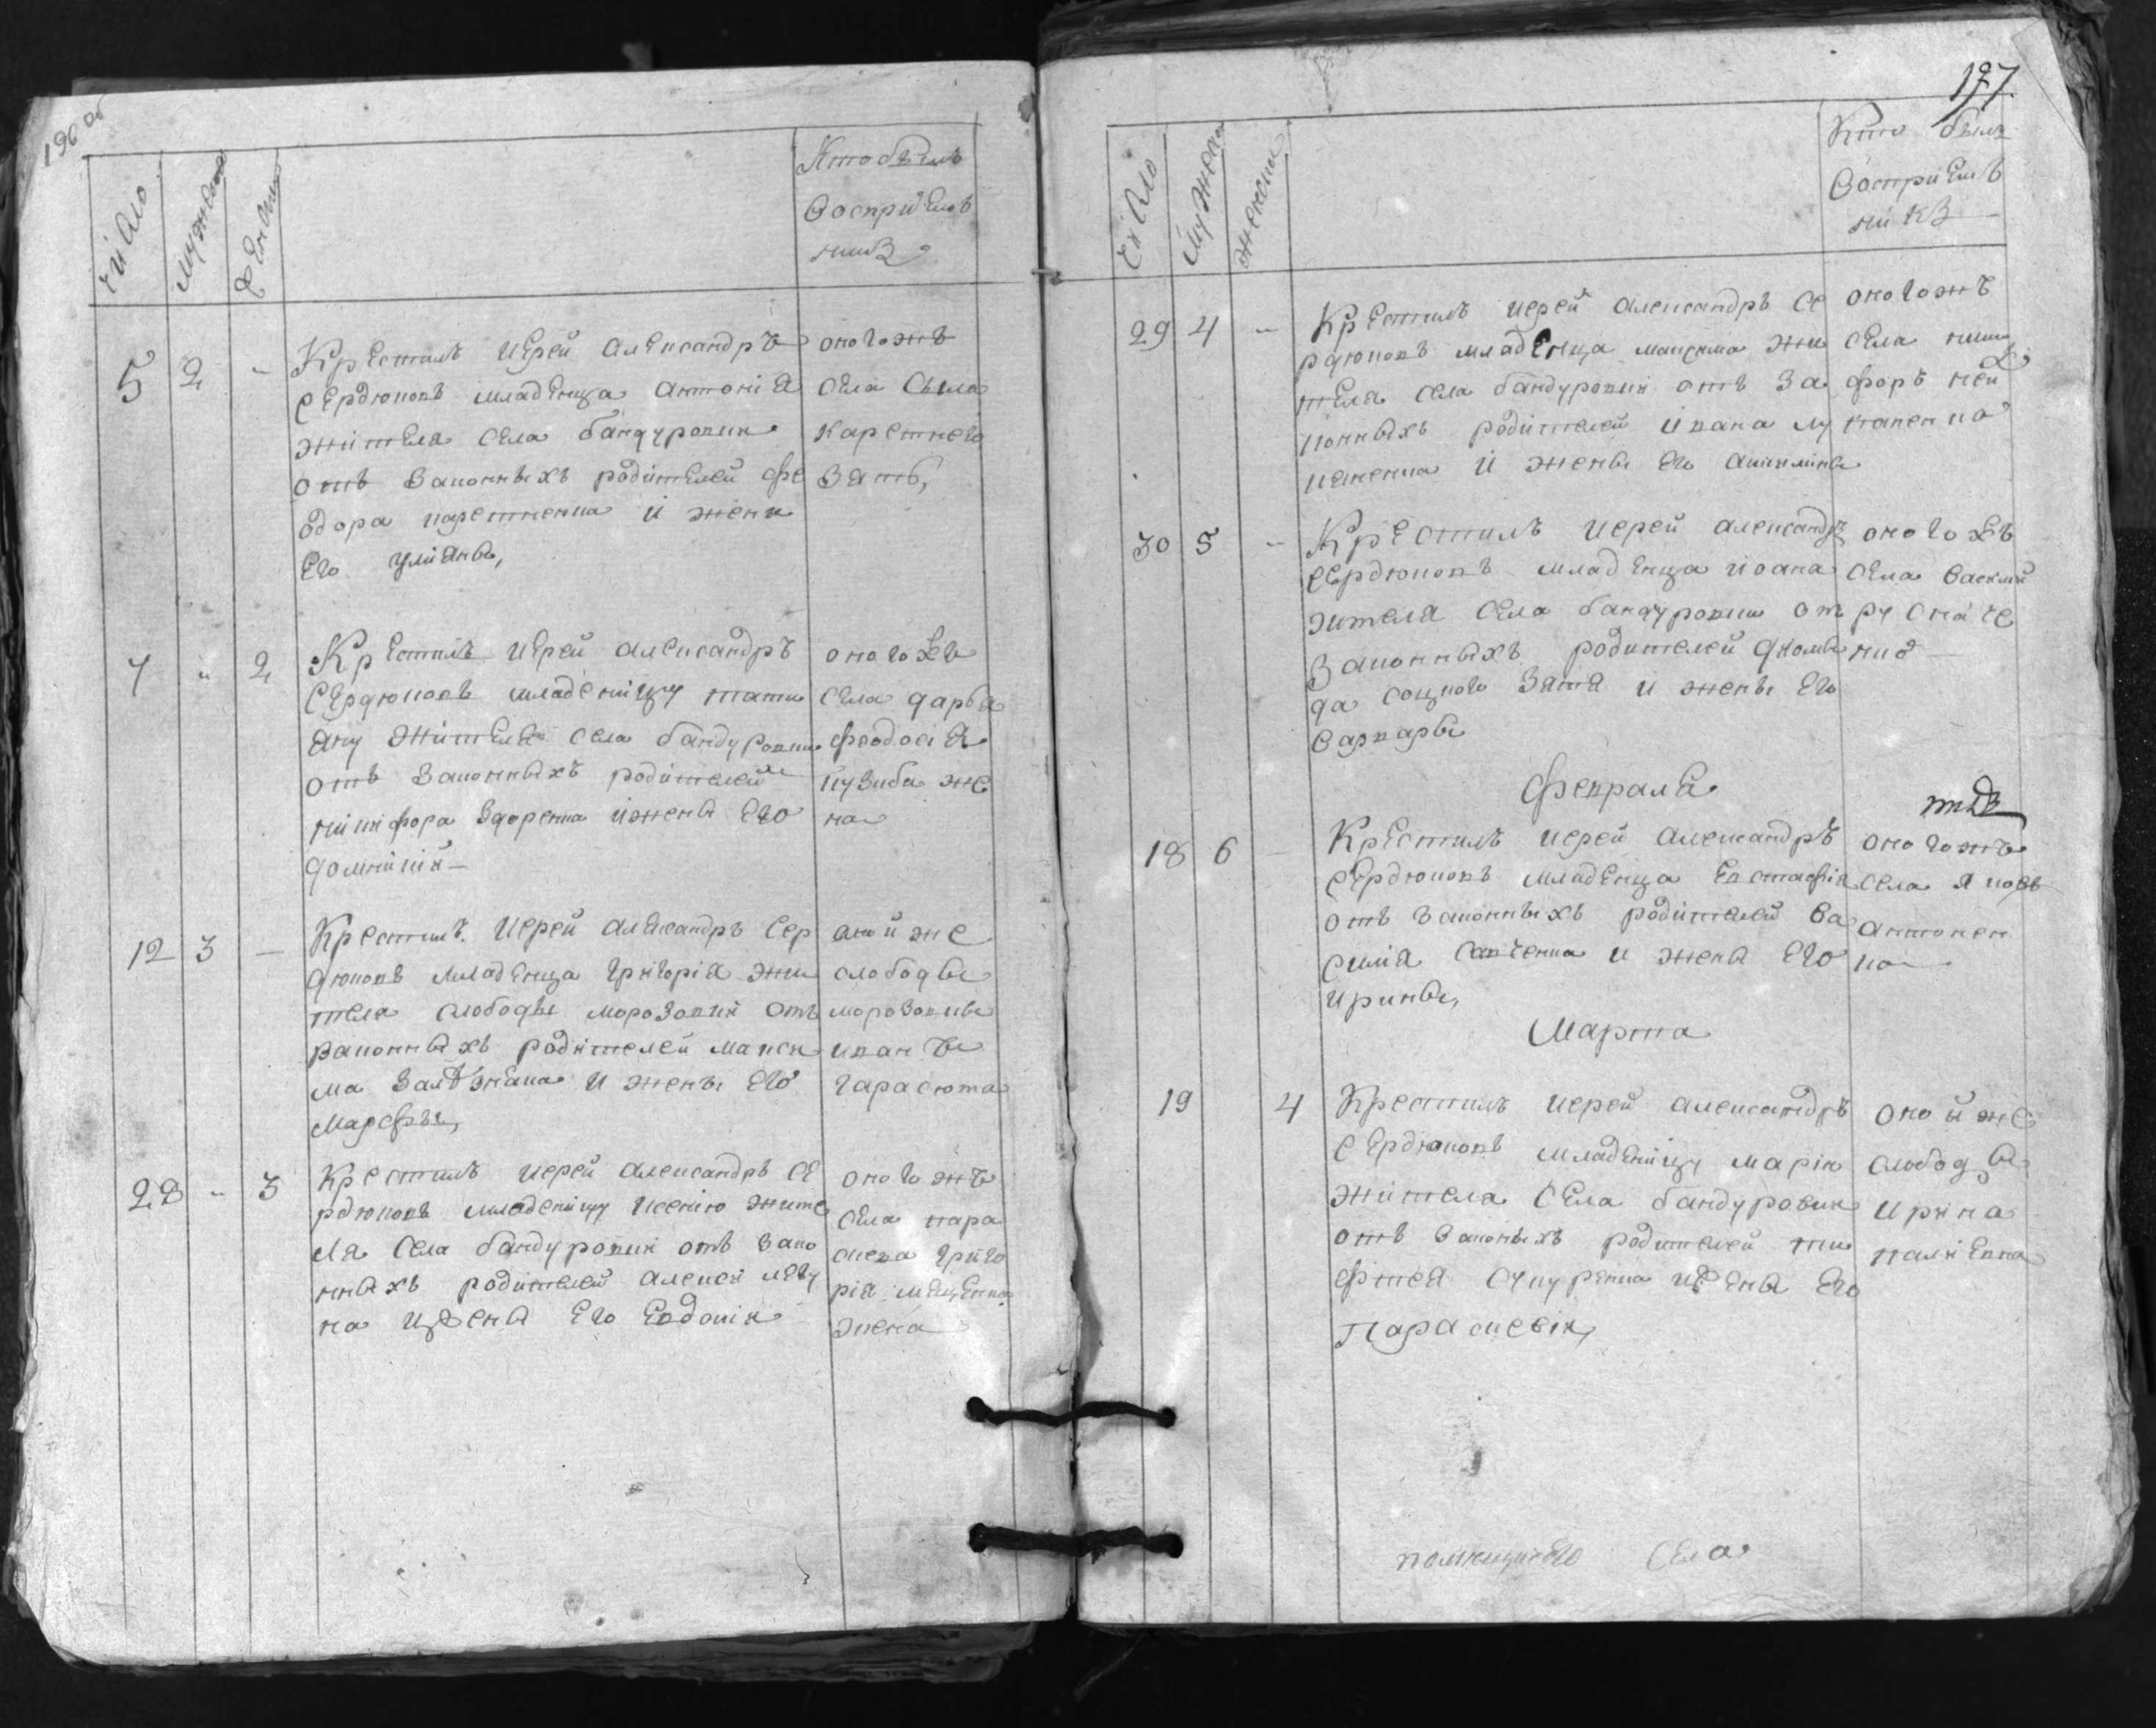 196 об
Число
мужеска
женска
Кто былъ
Воспріемъ
никъ
5 2 -
Крестилъ иерей Александръ
Сердюковъ младенца антонія
жителя села бандуровки
отъ законныхъ родителей фе
одора каретненка и жены
Его Уліяны,
оного жъ
села
каретнего
зять,
7 " 2
Крестилъ иерей александръ
Сердюковъ младеницу тати
яну жителя села бандуровки
отъ законныхъ родителей
никифора Здоренка и жены Его
домникіи
оного жъ
села дарья
феодосія
пузиба же
на
12 3 —
Крестилъ иерей александръ Сер
дюковъ младенца григорія жи
теля слободы морозовки отъ
законныхъ родителей макси
ма и жены Его
Марефы,
оной же
слободы
морозовки
иванъ
гарасюта
28 " 3
Крестилъ иерей александръ Се
рдюковъ младеницу ксенію жите
ля села бандуровки отъ зако
нныхъ родителей алексія
на и жены Его Евдокіи
оного жъ
села пара
скева григо
рія
жена
197
Число
мужеска
женска
Кто былъ
Воспріемъ
никъ
29 4 "
Крестилъ иерей александръ Се
рдюковъ младенца максима жи
теля села бандуровки отъ за
конныхъ родителей ивана лу
и жены Его акилины
оного жъ
села ники
форъ
30 5 "
Крестилъ иерей александръ
Сердюковъ младенца иоана
жителя села бандуровки от
законныхъ родителей
да соцкого зятя и жены Его
варвары
оного жъ
села василій
Февраля
18 6 —
Крестилъ иерей александръ
Сердюковъ младенца Евстафія
отъ законныхъ родителей ва
силія Савченка и жены Его
ирины,
оного жъ
села яковъ
антонен
ко
Марта
19 4
Крестилъ иерей александръ
Сердюковъ младеницу марію
жителя села бандуровки
отъ законыхъ родителей ти
мофтея и жены Его
Параскевіи,
оной же
слободы
ирина
паліевна
помещичего села